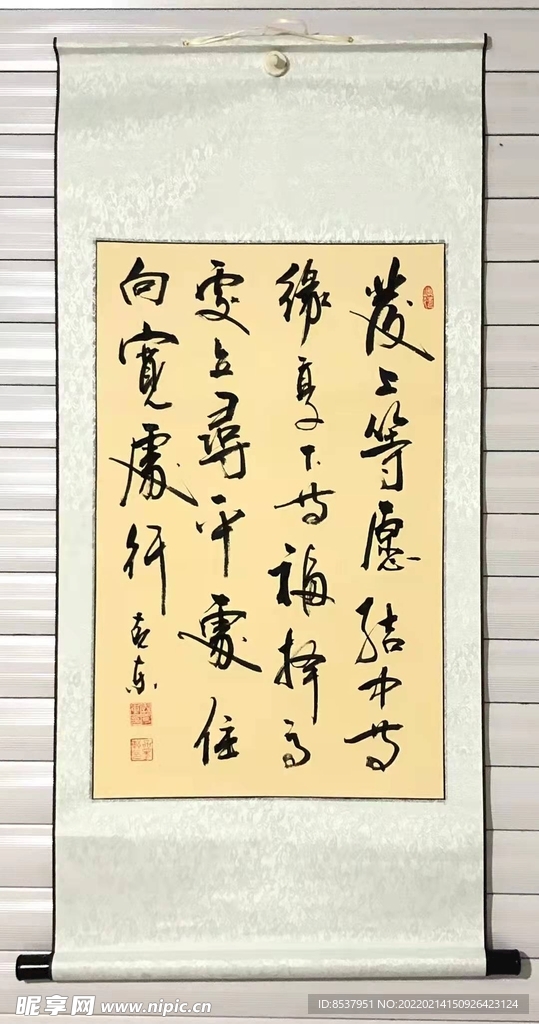 發上等愿结中等
缘享下等福择高
處立尋平處住
向寬處行
昵享网 www.nipic.cn
ID:8537951 NO:20220214150926423124